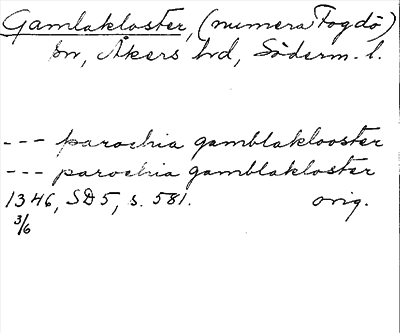 Gamlakloster, (numera Fogdö)
sn, Åkers hd, Söderm. l.
--- parochia gamblaklooster
--- parochia gamblakloster
1346, SD5, s. 581. orig.
3/6